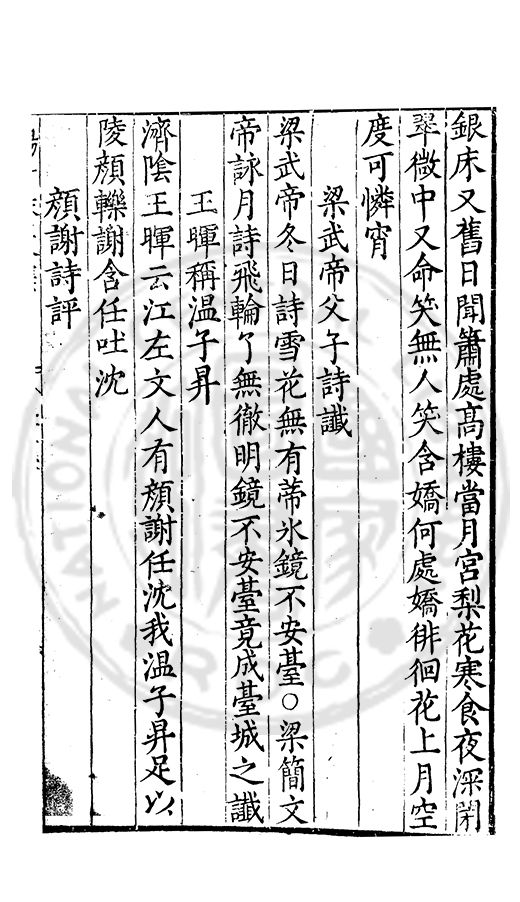 銀床又舊日聞簫處高樓當月宮梨花寒食夜深閉
翠微中又命笑無人笑含嬌何處嬌徘徊花上月空
度可憐宵
梁武帝父子詩讖
梁武帝冬日詩雪花無有蒂氷鏡不安䑓○梁簡文
帝詠月詩飛輪了無徹明鏡不安䑓竟成䑓城之讖
王暉稱温子昇
濟陰王暉云江左文人有顔謝任沈我温子昇足以
陵顔轢謝含任吐沈
顔謝詩評
NATIONAL